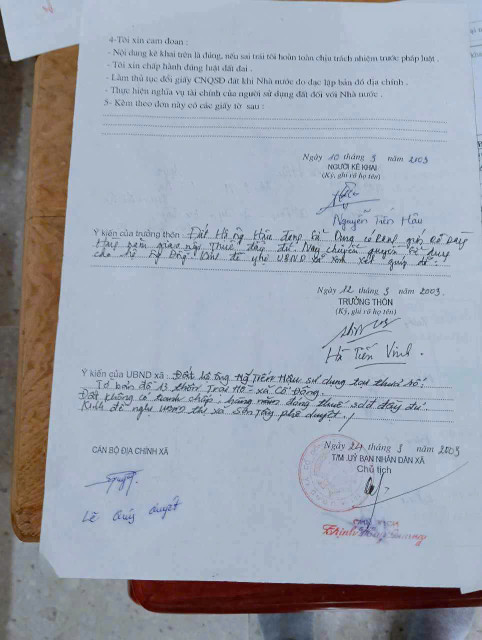 4-Tôi xin cam đoan :
- Nội dung kê khai trên là đúng, nếu sai trái tôi hoàn toàn chịu trách nhiệm trước pháp luật .
- Tôi xin chấp hành đúng luật đất đai .
- Làm thủ tục đổi giấy CNQSD đất khi Nhà nước đo đạc lập bản đồ địa chính .
- Thực hiện nghĩa vụ tài chính của người sử dụng đất đối với Nhà nước .
5- Kèm theo đơn này có các giấy tờ sau :
Ngày 10 tháng 3 năm 2003
NGƯỜI KÊ KHAI
(Ký, ghi rõ họ tên)
Nguyễn Tiến Hâu
Ý kiến của trưởng thôn : Đất Hộ Ông Hâu đang sử dụng có
thuế đầy đủ. Nay chuyển quyền sử dụng
đề nghị UBND xã xem xét giúp đỡ.
Ngày 12 tháng 3 năm 2003.
TRƯỞNG THÔN
(Ký, ghi rõ họ tên)
Hà Tiến Vinh.
Ý kiến của UBND xã : Đất hộ ông Tiến Hâu sử dụng tại thửa số
Tờ bản đồ 13 thôn Trại Hồ - xã Cổ Đông.
Đất không có tranh chấp, hàng năm đóng thuế sdđ đầy đủ.
Kính đề nghị UBND thị xã Sơn Tây phê duyệt./
CÁN BỘ ĐỊA CHÍNH XÃ
Ngày 24 tháng 3 năm 2003
T/M UỶ BAN NHÂN DÂN XÃ
Chủ tịch
Lê Quý Quyết